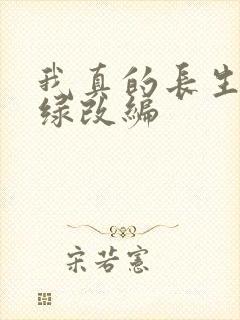 我真的長生
绿改编
宋若憲